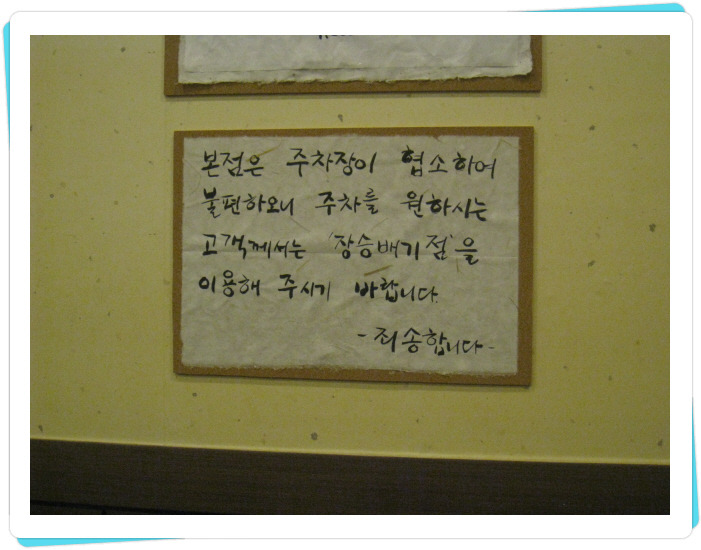 본점은 주차장이 협소하여
불편하오니 주차를 원하시는
고객께서는 '장승배기점'을
이용해 주시기 바랍니다.
- 죄송합니다 -